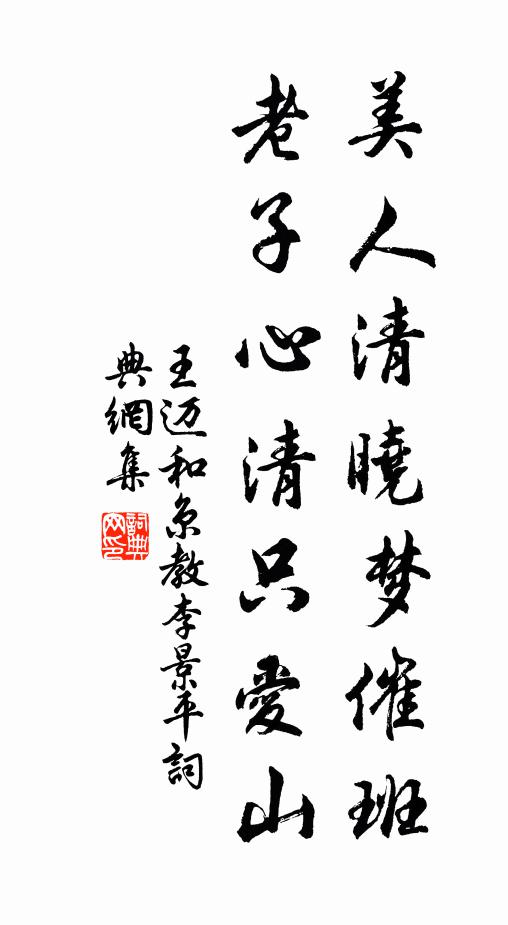 美人清曉梦催班
老子心清只愛山
王迈和京教李景平詞
典網集
詞典网印